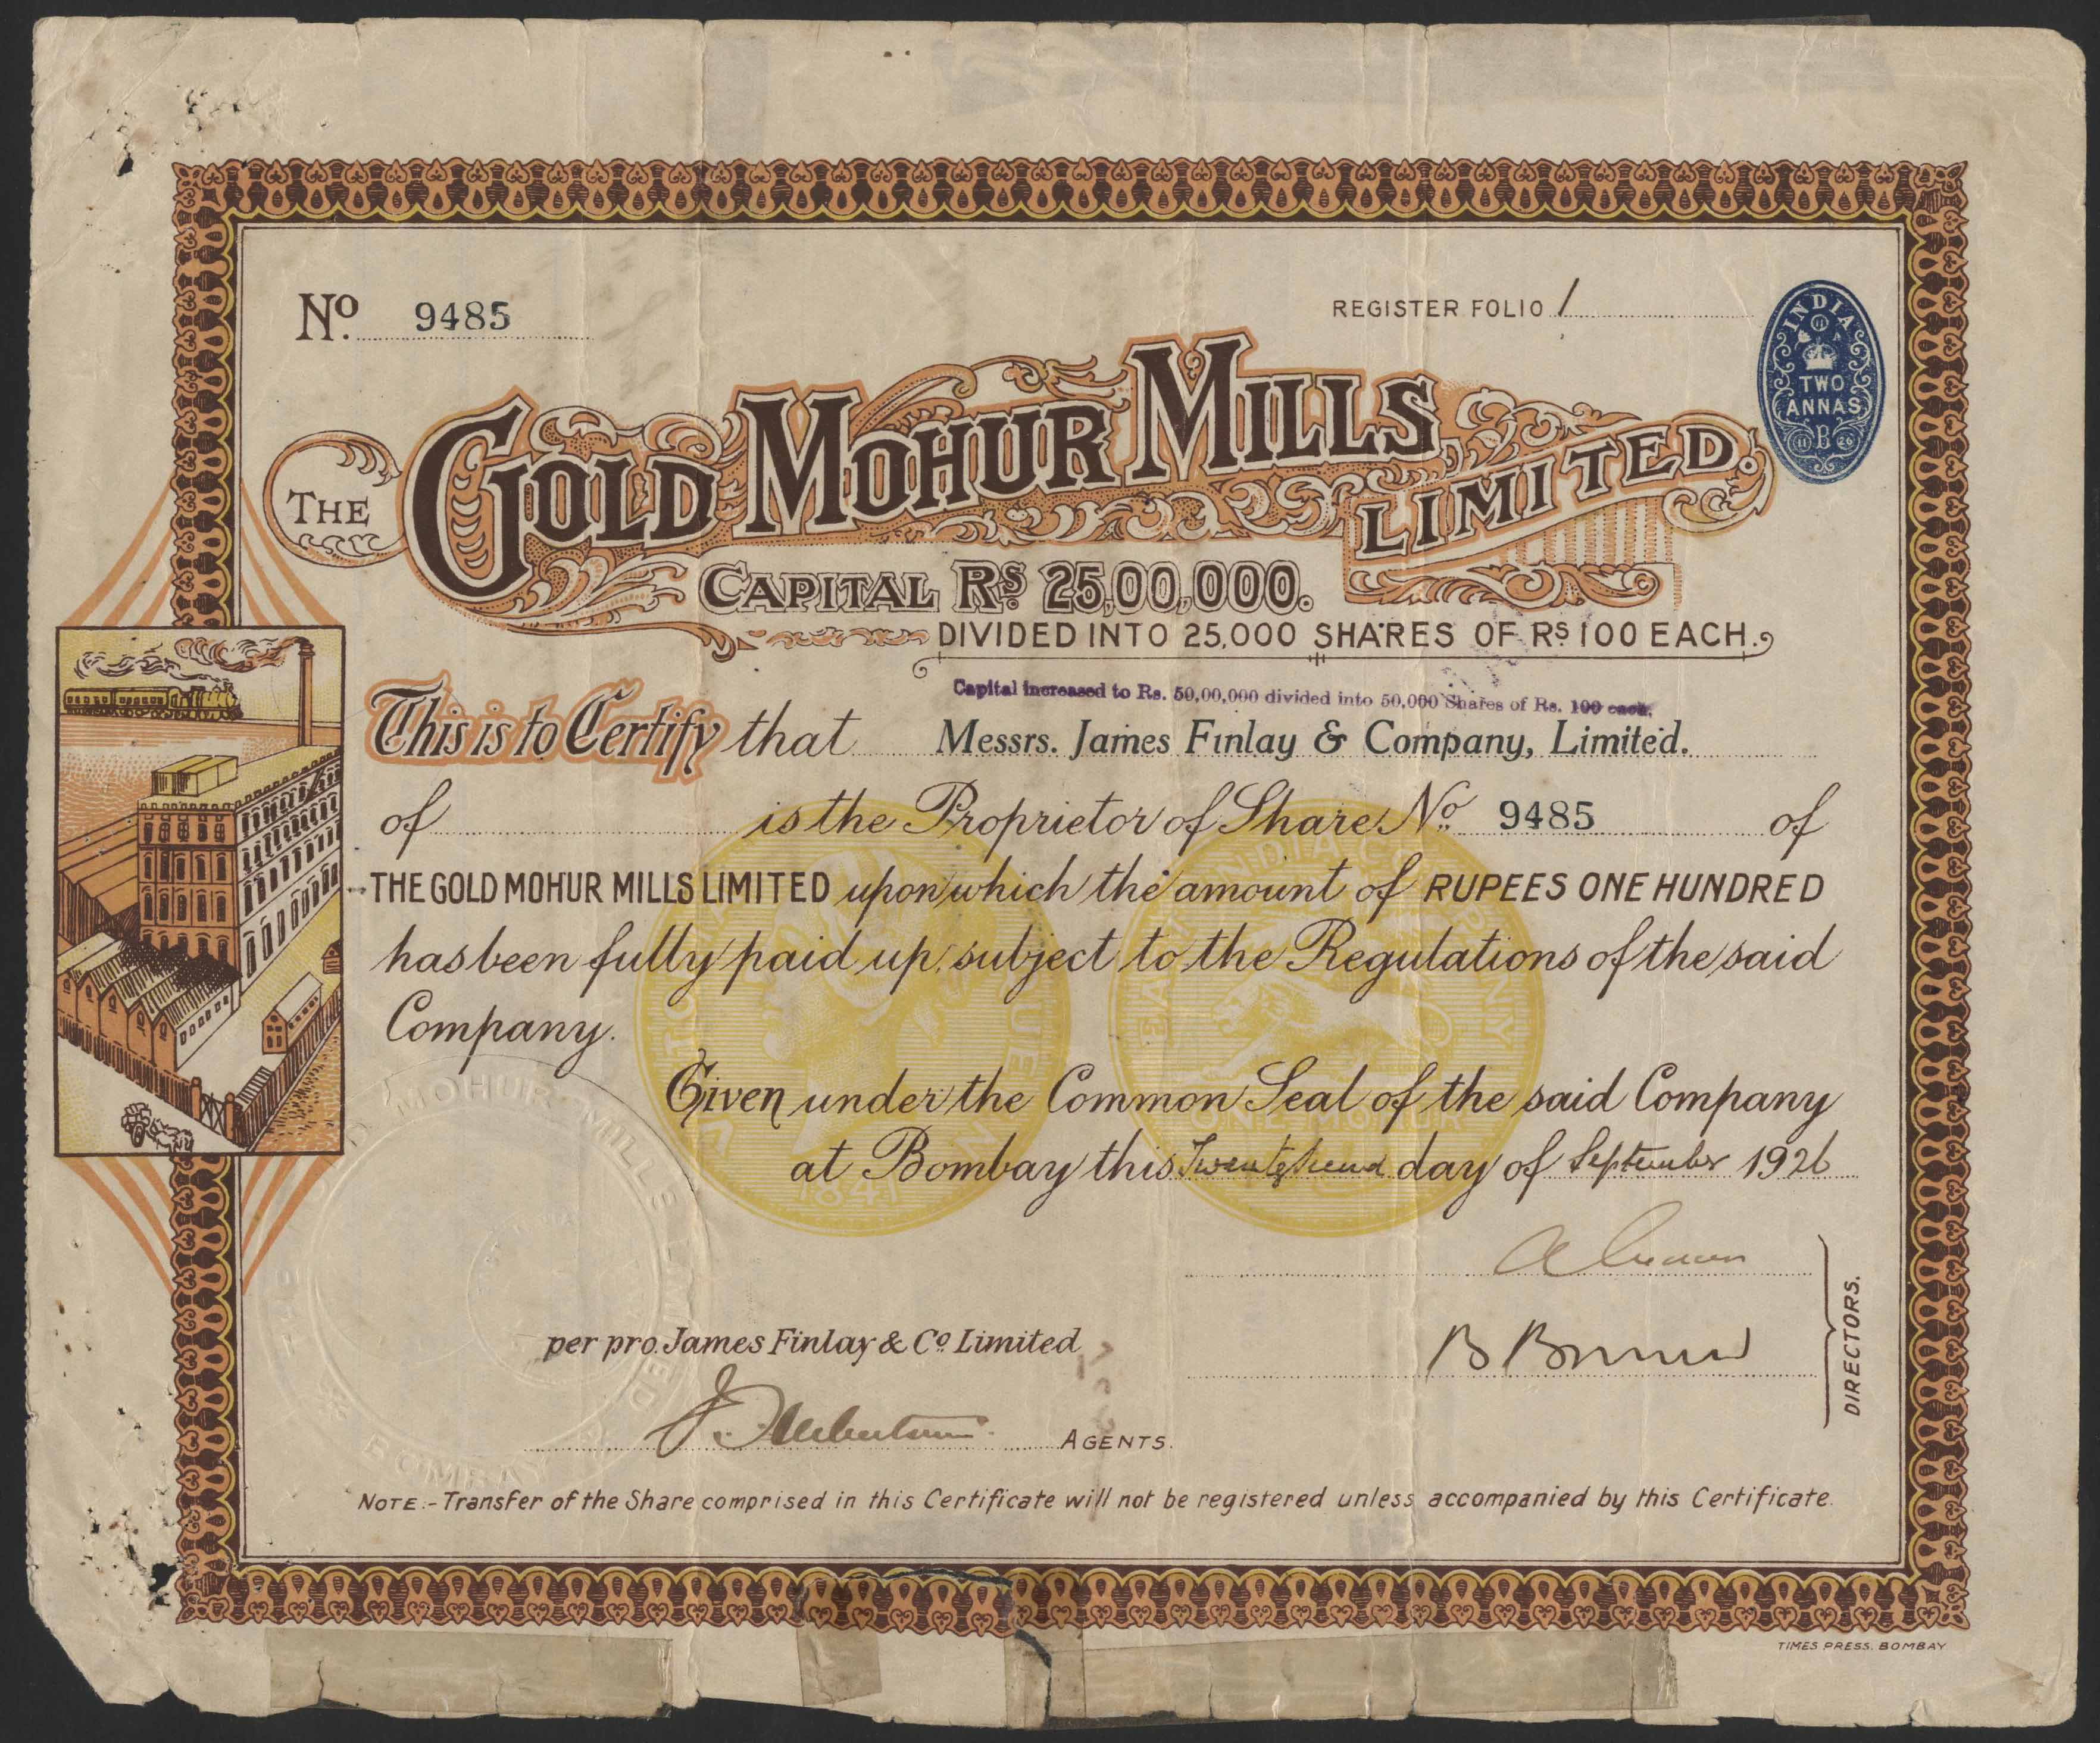 No. 9485
REGISTER FOLIO 1
INDIA
TWO
ANNAS
11 B 26
THE GOLD MOHUR MILLS LIMITED.
CAPITAL Rs. 25,00,000.
DIVIDED INTO 25,000 SHARES OF Rs 100 EACH.
Capital increased to Rs. 50,00,000 divided into 50,000 Shares of Rs. 100 each.
This is to Certify that Messrs. James Finlay & Company, Limited.
of is the Proprietor of Share No. 9485 of
THE GOLD MOHUR MILLS LIMITED upon which the amount of RUPEES ONE HUNDRED
has been fully paid up, subject to the Regulations of the said
Company.
EAST INDIA COMPANY
ONE MOHUR
VICTORIA QUEEN
1841
Given under the Common Seal of the said Company
at Bombay this day of September 1926
THE GOLD MOHUR MILLS LIMITED
BOMBAY
DIRECTORS.
per pro. James Finlay & Co. Limited
AGENTS.
NOTE:- Transfer of the Share comprised in this Certificate will not be registered unless accompanied by this Certificate.
TIMES PRESS, BOMBAY